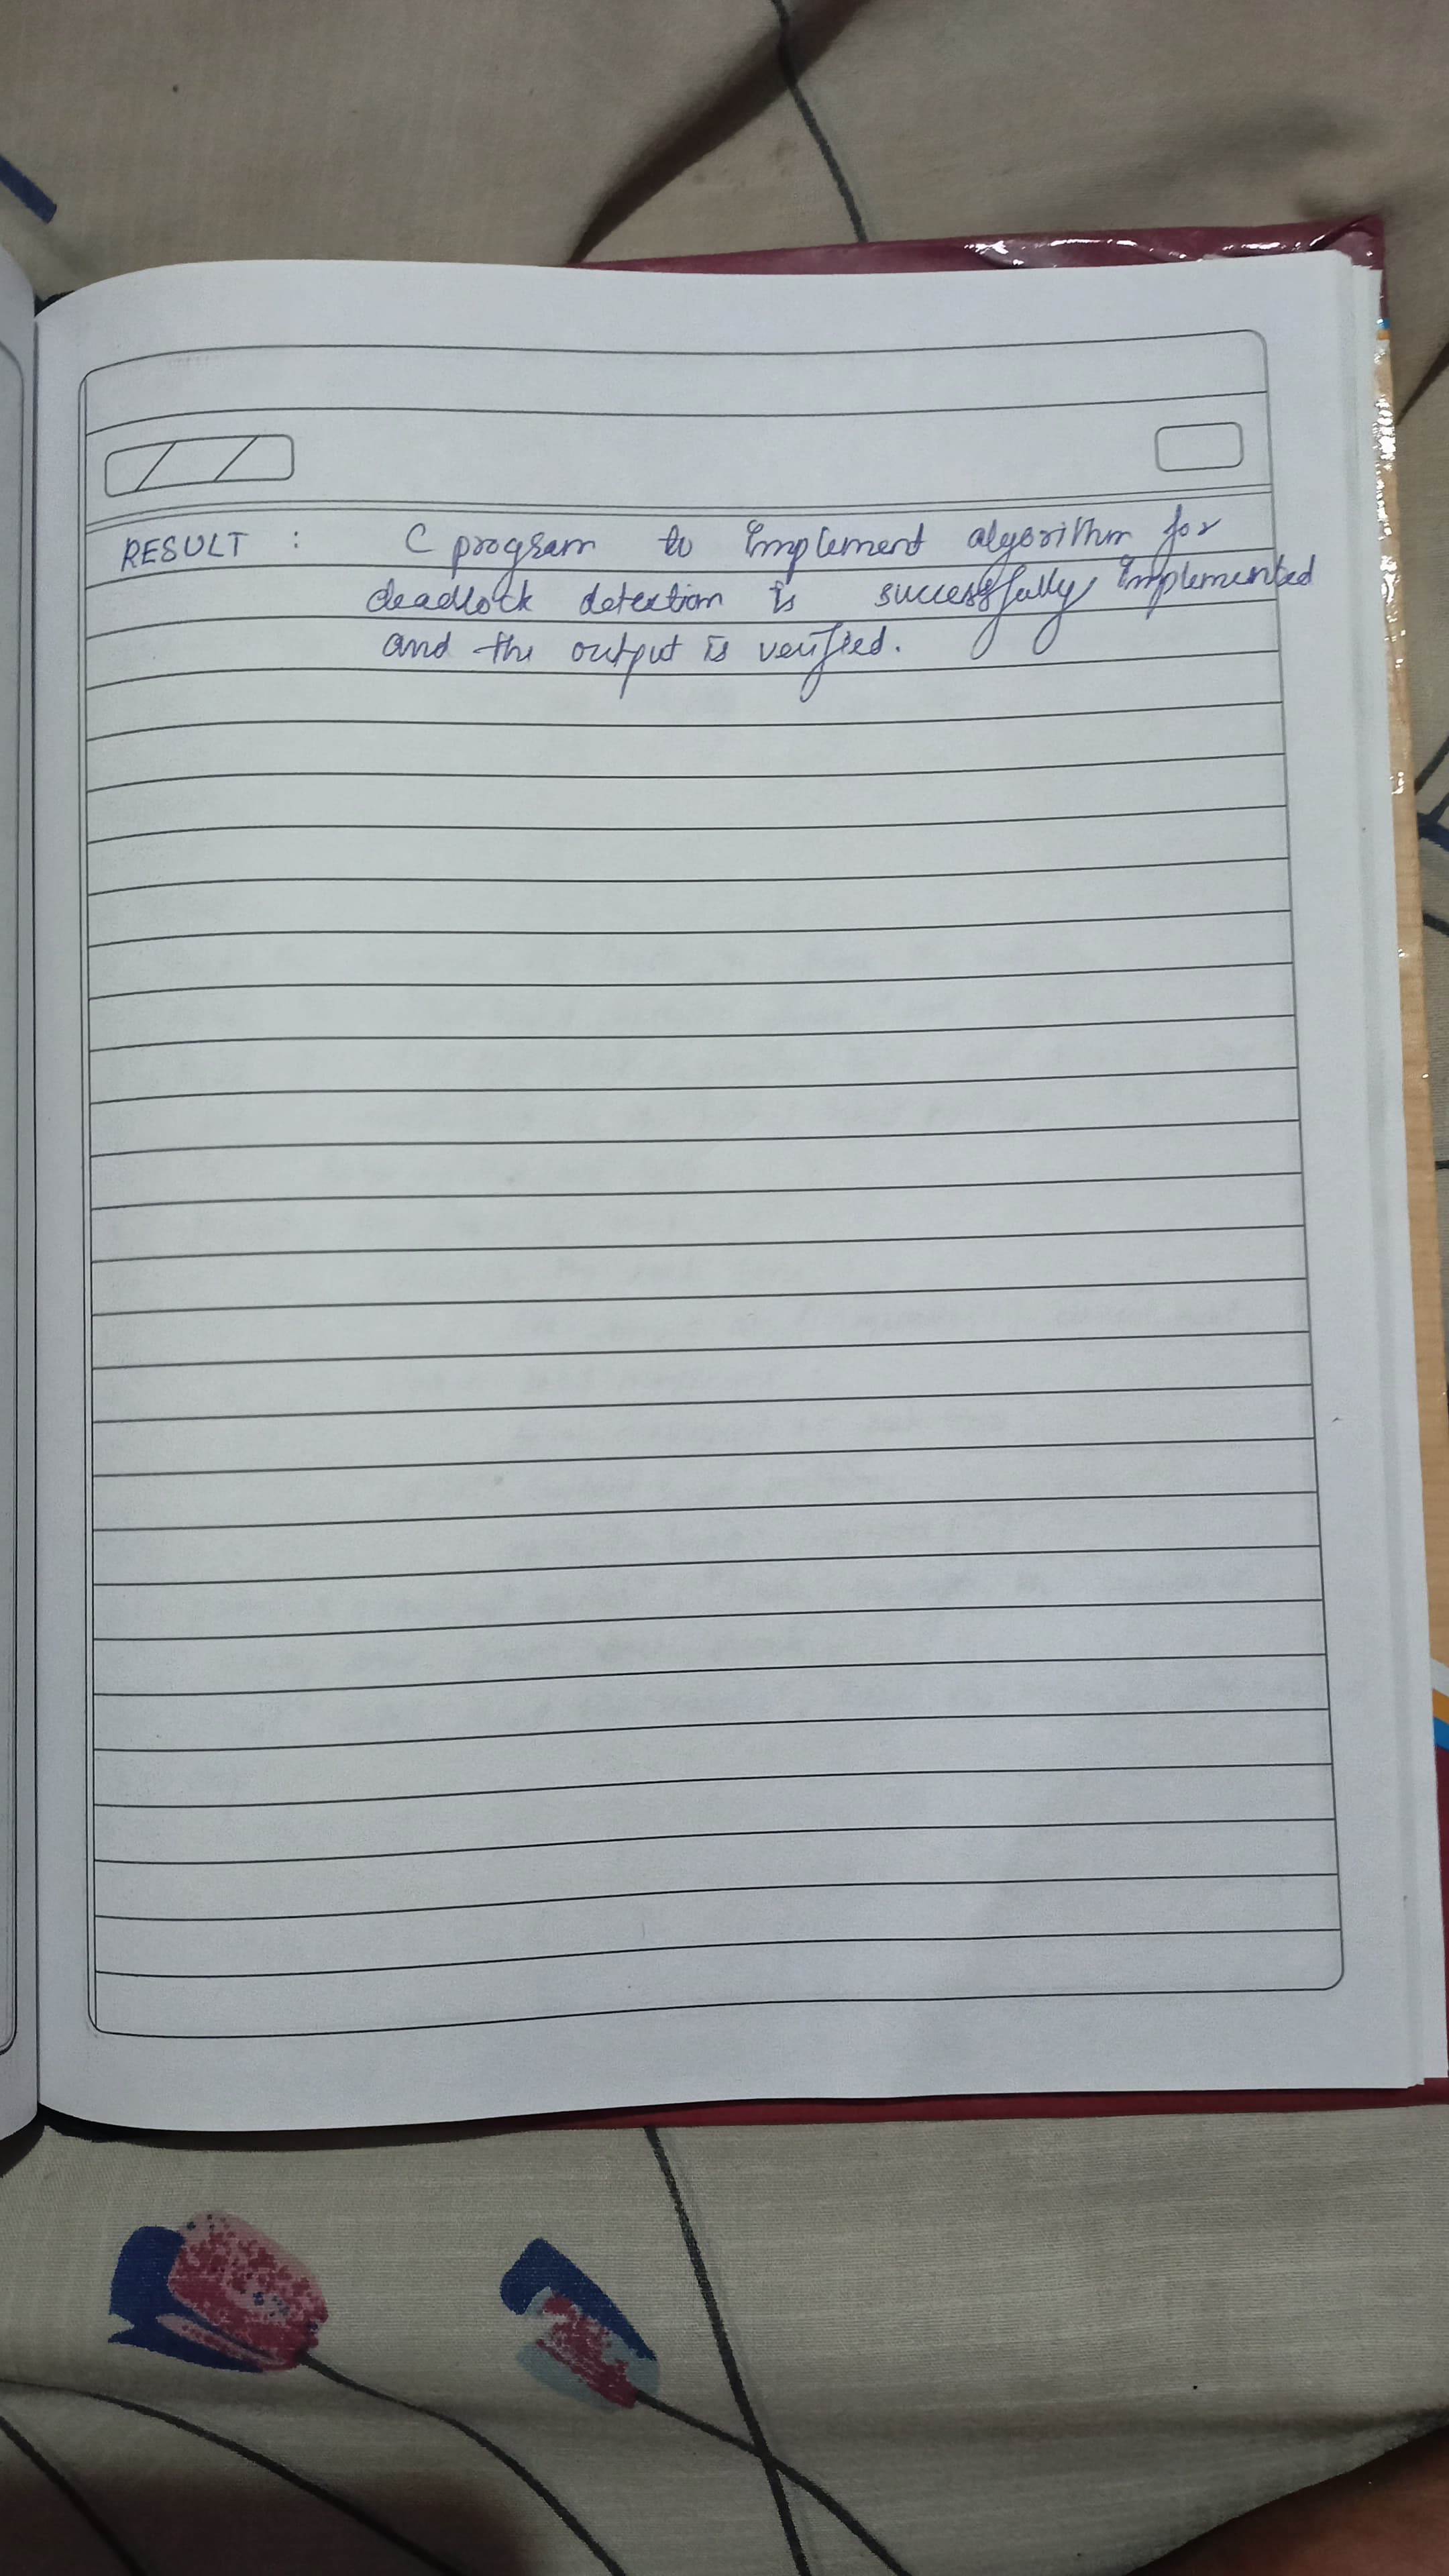 RESULT : C program to implement algorithm for
deadlock detection is successfully implemented
and the output is verified.